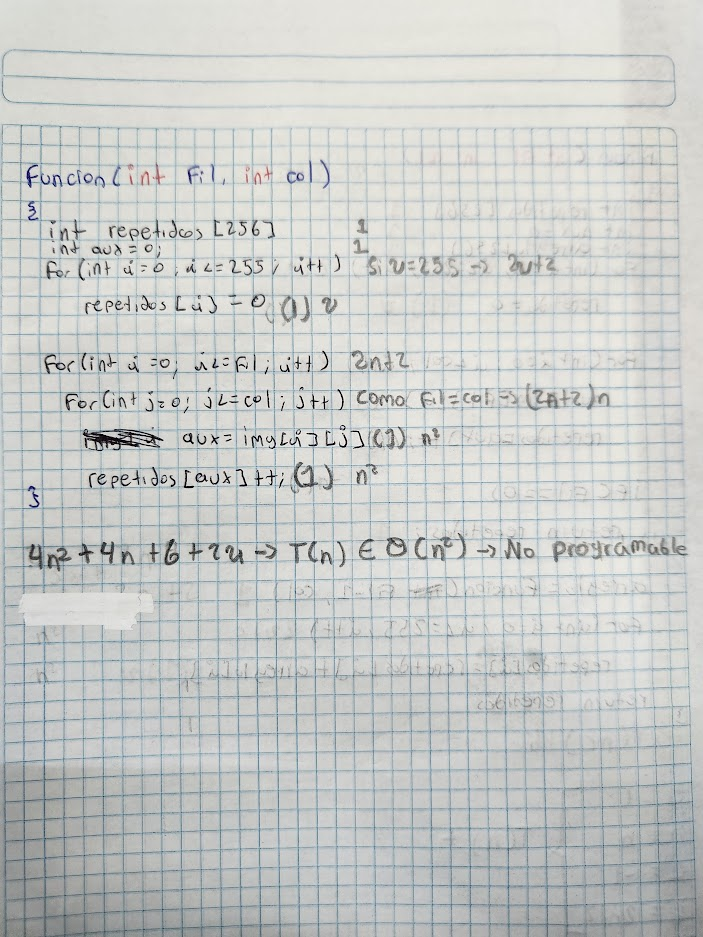 Funcion (int Fil, int col)
{
int repetidos [256] 1
int aux = 0; 1
For (int i = 0 ; i <= 255 ; i++) Si v=255 -> 2v+2
repetidos [i] = 0 (1) v
For (int i = 0; i <= Fil ; i++) 2n+2
For (int j=0; j <= col ; j++) como Fil=col -> (2n+2)n
aux = img[i][j] (1) n²
repetidos [aux] ++; (1) n²
}
4n² + 4n + 6 + 2u -> T(n) ∈ Θ(n²) -> No programable